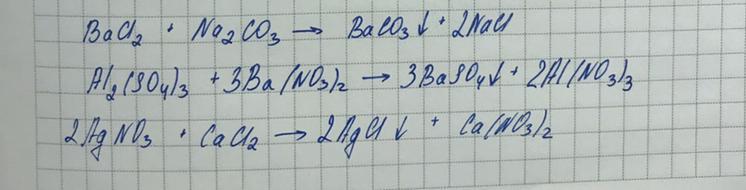 BaCl₂ + Na₂CO₃ → BaCO₃↓ + 2NaCl
Al₂(SO₄)₃ + 3Ba(NO₃)₂ → 3BaSO₄↓ + 2Al(NO₃)₃
2AgNO₃ + CaCl₂ → 2AgCl↓ + Ca(NO₃)₂